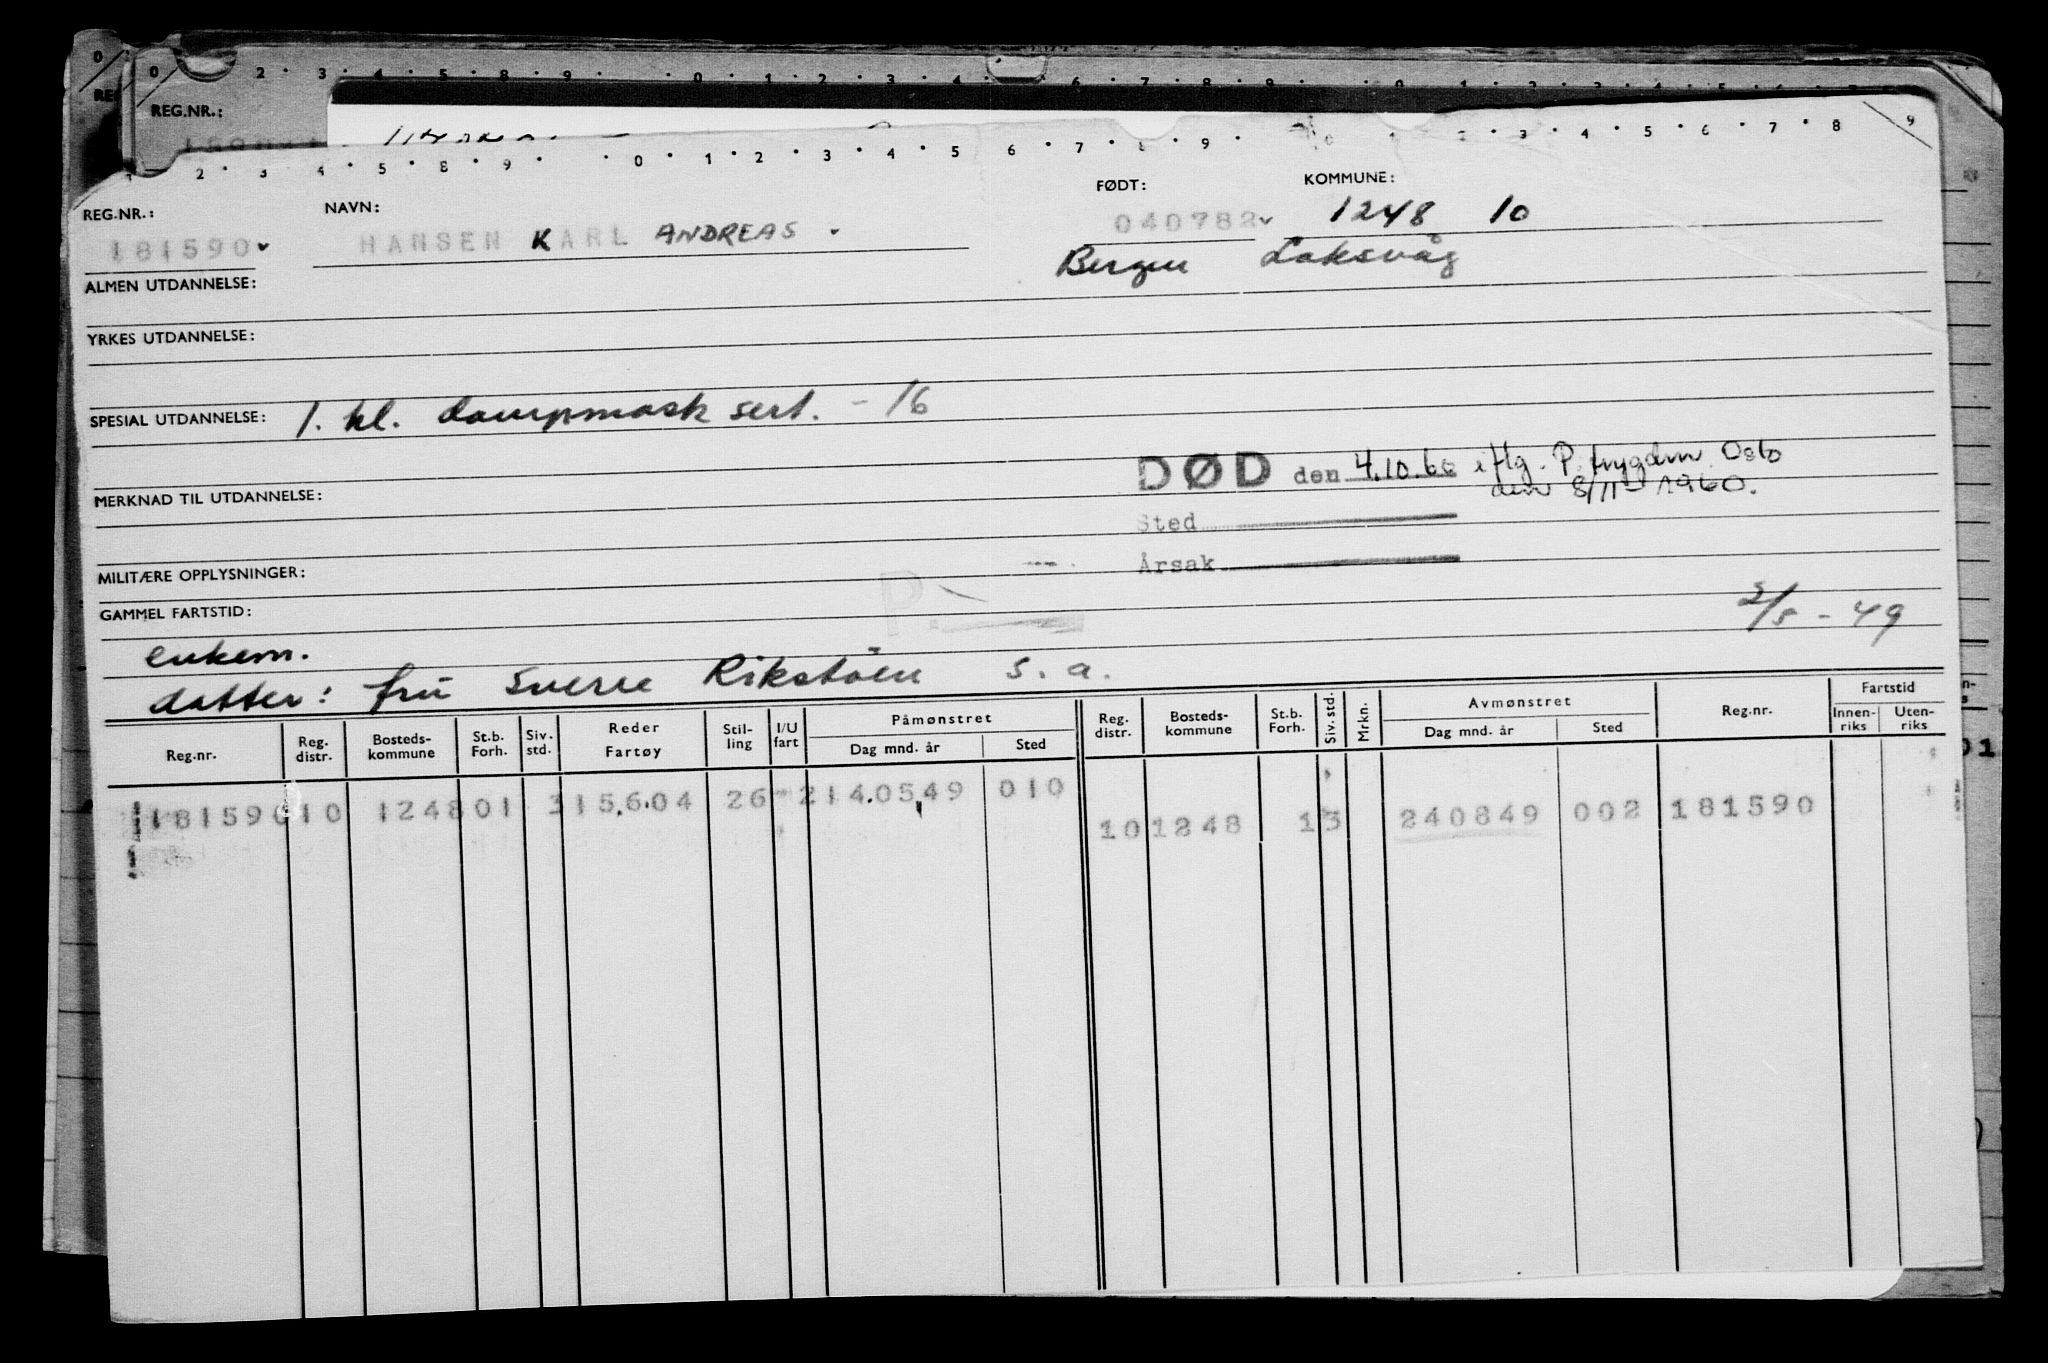 0 2 3 4 5 8 9 0 1 2 3 4 6 7 8 9 0 1 2
REG.NR.:
2 3 4 5 8 9 0 1 2 3 4 5 6 7 8 9 0 1 2 3 4 5 6 7 8 9
REG.NR.: NAVN: FØDT: KOMMUNE:
181590 HANSEN KARL ANDREAS 040782 1248 10
Bergen Laksvåg
ALMEN UTDANNELSE:
YRKES UTDANNELSE:
SPESIAL UTDANNELSE: 1. kl. dampmask sert. - 16
DØD den 4.10.60 iflg. P. trygden Oslo
den 8/11 - 1960.
MERKNAD TIL UTDANNELSE:
Sted
Årsak
MILITÆRE OPPLYSNINGER:
P.
GAMMEL FARTSTID:
2/5 - 49
enkem.
datter: fru Sverre Rikstöen s. a.
Reg.nr. Reg. distr. Bosteds-kommune St.b. Forh. Siv. std. Reder Fartøy Stil-ling I/U fart Påmønstret Dag mnd. år Sted Reg. distr. Bosteds-kommune St.b. Forh. Siv. std. Mrkn. Avmønstret Dag mnd. år Sted Reg.nr. Fartstid Innen-riks Uten-riks
181590 10 1248 01 3 15.6.04 26 2 14.05.49 010 10 1248 13 240849 002 181590